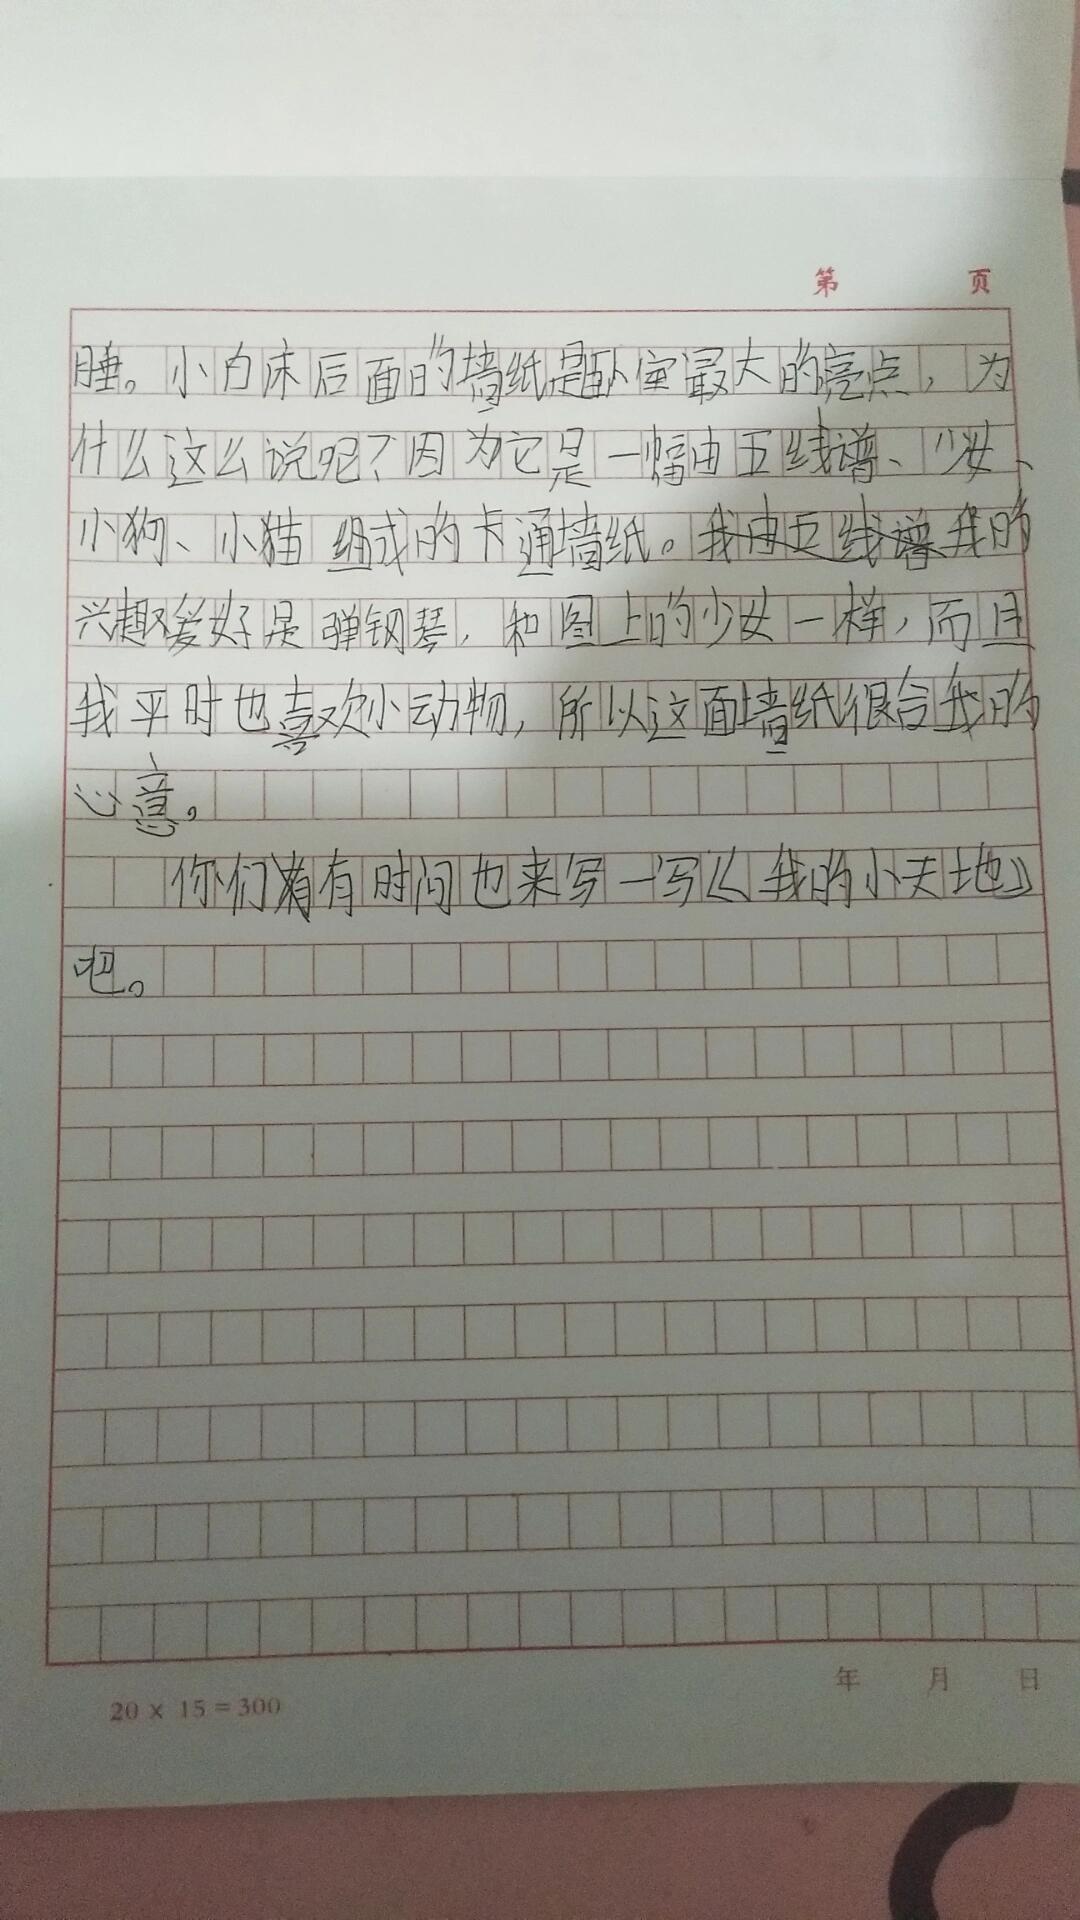 第 页
睡。小白床后面的墙纸是卧室最大的亮点，为
什么这么说呢？因为它是一幅由五线谱、少女、
小狗、小猫组成的卡通墙纸。我由五线谱我的
兴趣爱好是弹钢琴，和图上的少女一样，而且
我平时也喜欢小动物，所以这面墙纸很合我的
心意。
你们有时间也来写一写《我的小天地》
吧。
年 月 日
20 × 15 = 300